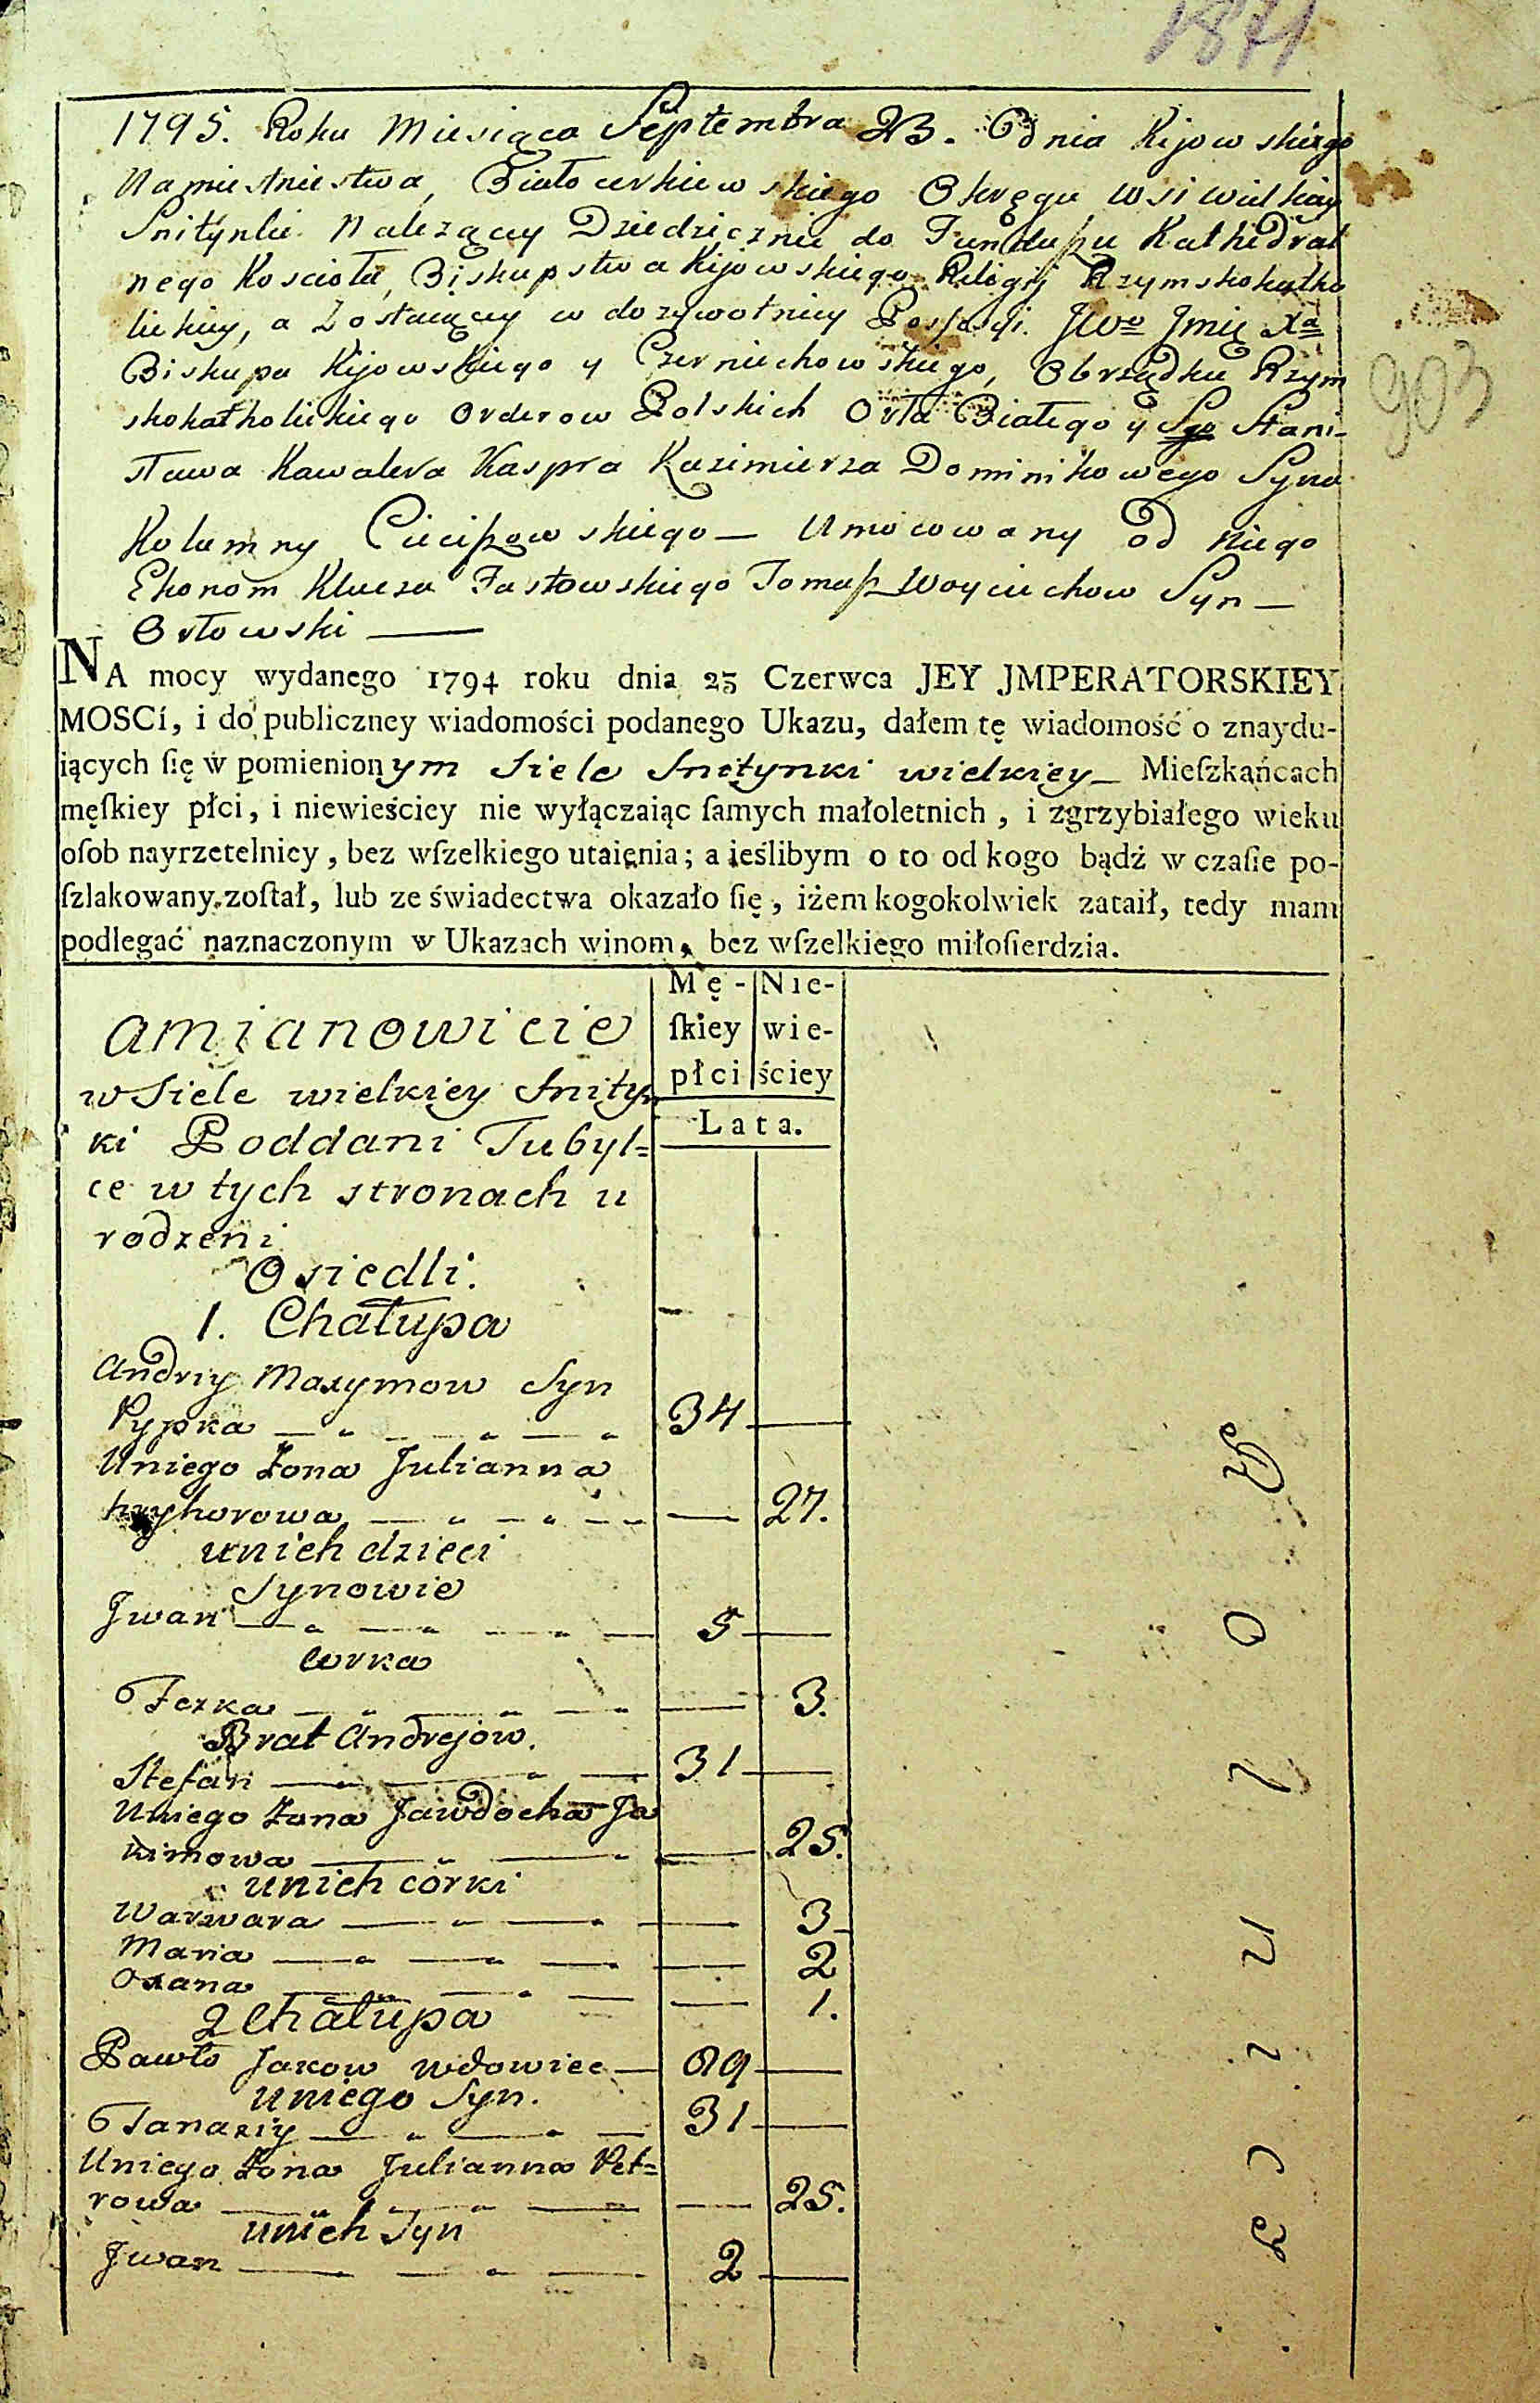 1871
1795. Roku Miesiąca Septembra 23. Odnia Kijowskiego
Namiestnictwa, Białocerkiewskiego Okręgu Wsi Wielkiey
Snitynki Należący Dziedzicznie do Funduszu Kathedral
nego Kościoła, Biskupstwa Kijowskiego Religij Rzymskokatho
lickiey, a Zostaiący w dozywotniey Possessyi. JWo Jmię Xa
Biskupa Kijowskiego y Czerniechowskiego, Obrządku Rzym
skokatholickiego Orderow Polskich Orła Białego y Sgo Stani-
sława Kawalera Kaspra Kazimierza Dominikowego Syna
Kolumny Cieciszowskiego — Umocowany od niego
Ekonom Klucza Fastowskiego Tomasz Woyciechow Syn —
Orłowski —
903
NA mocy wydanego 1794 roku dnia 23 Czerwca JEY JMPERATORSKIEY
MOSCí, i do publiczney wiadomości podanego Ukazu, dałem tę wiadomość o znaydu-
iących ſię w pomienionym Siele Snitynki wielkiey — Mieſzkańcach
męſkiey płci, i niewieściey nie wyłączaiąc ſamych małoletnich , i zgrzybiałego wieku
oſob nayrzetelniey , bez wſzelkiego utaienia ; a ieślibym o to od kogo bądź w czaſie po-
ſzlakowany zoſtał, lub ze świadectwa okazało ſię , iżem kogokolwiek zataił, tedy mam
podlegać naznaczonym w Ukazach winom, bez wſzelkiego miłoſierdzia.
Mę- Nie-
ſkiey wie-
płci ściey
Lata.
amianowicie
w Siele wielkiey Snityn
ki Poddani Tubyl=
ce w tych stronach u
rodzeni
Osiedli.
1. Chałupa
Andriy Maxymow Syn
Pypka — 34 —
Uniego Zona Julianna
hryhorowa — — 27.
unich dzieci
Synowie
Jwan — 5 —
corka
Fezka — — 3.
Brat Andrejow.
Stefan — 31 —
Uniego Zona Jawdocha Ja
kimowa — — 25.
unich corki
Warwara — — 3
Maria — — 2
Oxana — — 1.
2 Chałupa
Pawło Jakow wdowiec — 69 —
uniego Syn.
Tanaziy — 31 —
Uniego Zona Julianna Pet=
rowa — — 25.
unich Syn
Jwan — 2 —